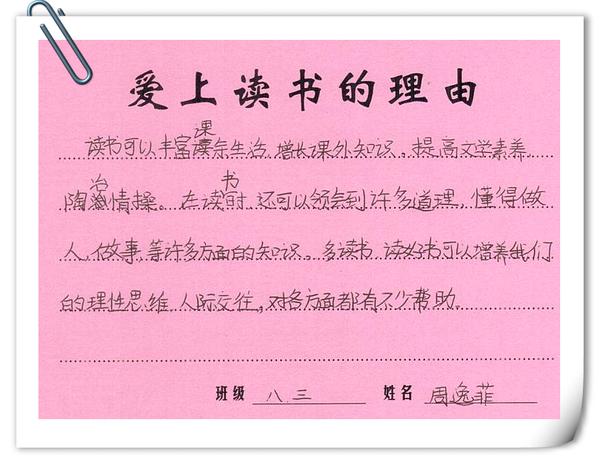 爱上读书的理由
读书可以丰富课余生活，增长课外知识，提高文学素养，
陶冶情操。在读书时，还可以领会到许多道理，懂得做
人，做事，等许多方面的知识。多读书，读好书可以增养我们
的理性思维，人际交往，对各方面都有不少帮助。
班级 八.三 姓名 周逸菲